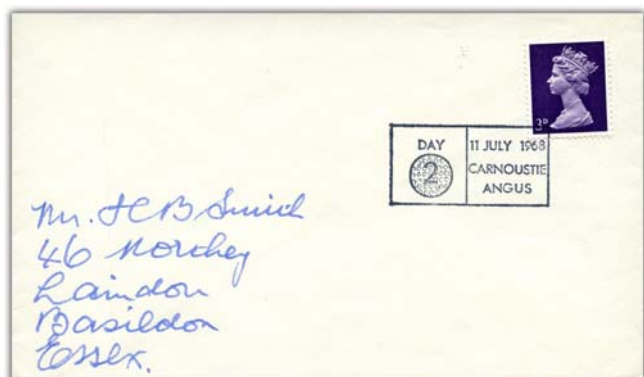 3D
DAY
2
11 JULY 1968
CARNOUSTIE
ANGUS
Mr. H C B Smith
46 Northey
Laindon
Basildon
Essex.